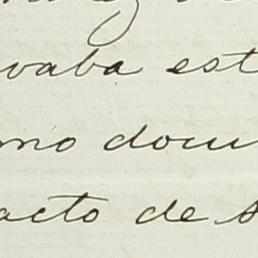 vaba est
mo docu
acto de s